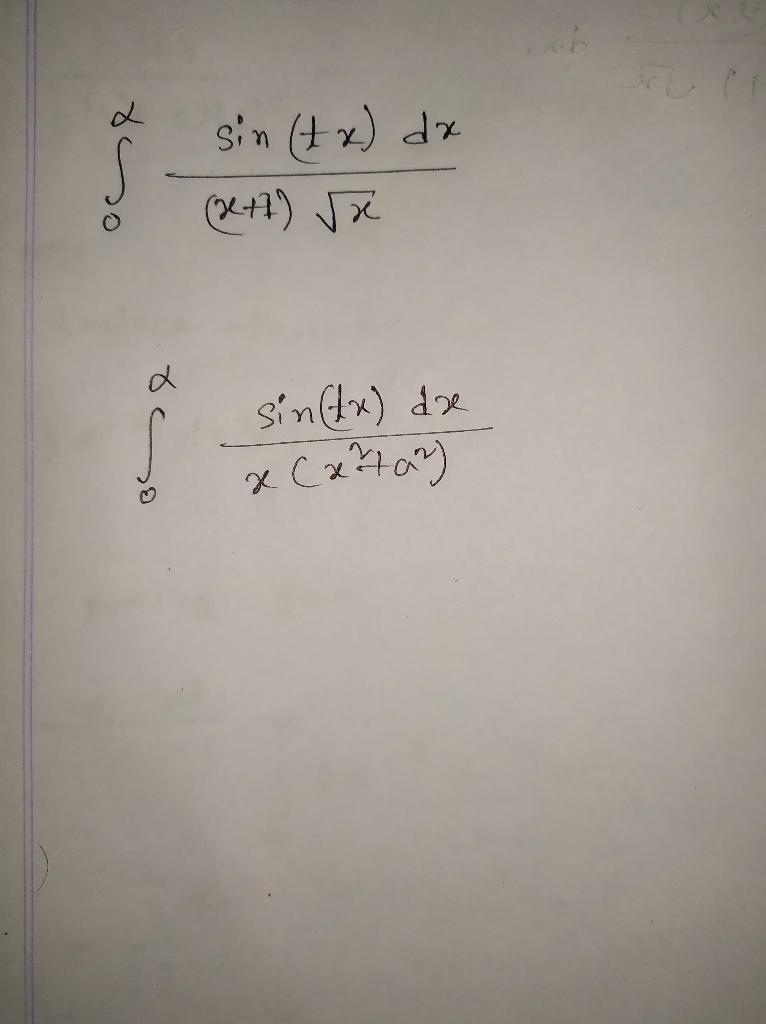 ∫₀^α sin(tx) dx / (x+7) √x
∫₀^α sin(tx) dx / x(x²+a²)